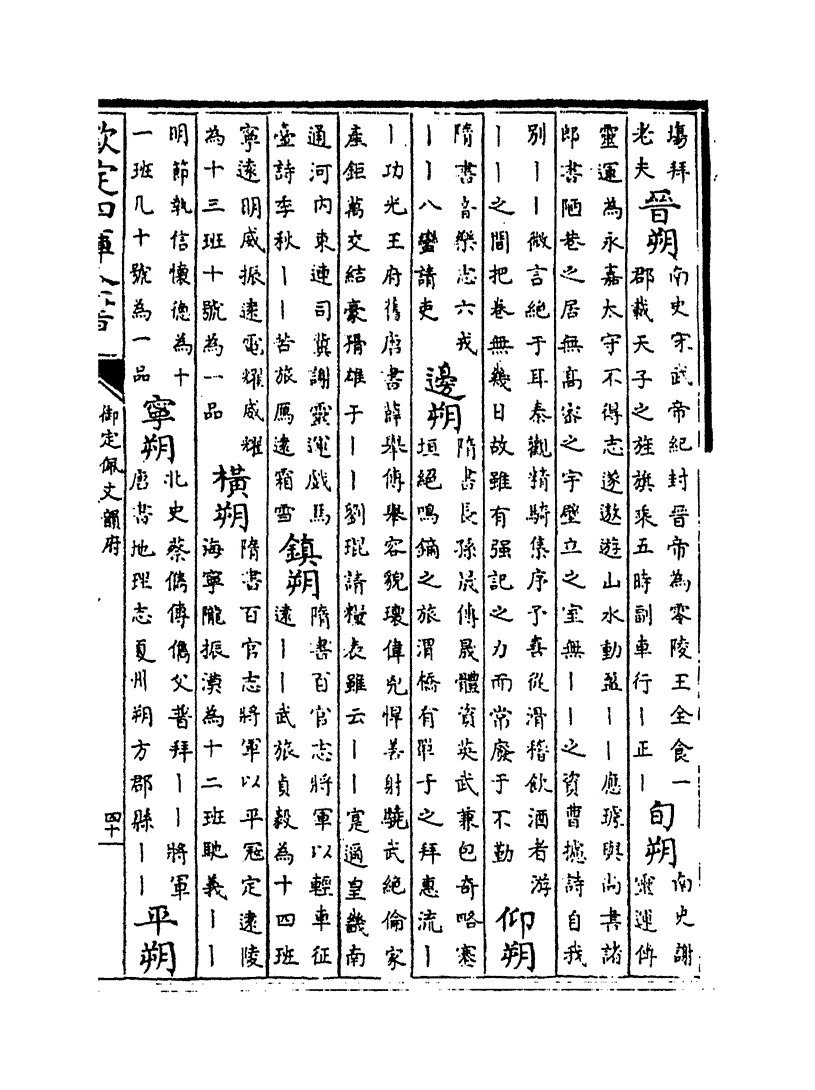 塲拜
老夫
晉朔
南史宋武帝紀封晉帝為零陵王全食一
郡載天子之旌旗乘五時副車行丨正丨
旬朔
南史謝
靈運傳
靈運為永嘉太守不得志遂遨遊山水動盈丨丨應璩與尚書諸
郎書陋巷之居無高宻之宇壁立之室無丨丨之資曹攄詩自我
別丨丨微言絕于耳秦觀精騎集序予喜從滑稽飲酒者游
丨丨之間把卷無幾日故雖有强記之力而常廢于不勤
仰朔
隋書音樂志六戎
丨丨八蠻請吏
邊朔
隋書長孫晟傳晟體資英武兼包奇略塞
垣絕鳴鏑之旅渭橋有單于之拜惠流丨
丨功光王府舊唐書薛舉傳舉容貌瓌偉兇悍善射驍武絕倫家
產鉅萬交結豪猾雄于丨丨劉琨請糧表雖云丨丨寔逼皇畿南
通河內東連司冀謝靈運戲馬
臺詩季秋丨丨苦旅鴈違霜雪
鎮朔
隋書百官志將軍以輕車征
遠丨丨武旅貞毅為十四班
寧遠明威振遠電耀威耀
為十三班十號為一品
橫朔
隋書百官志將軍以平冠定遠陵
海寧隴振漠為十二班馳義丨丨
明節執信懷德為十
一班凡十號為一品
寧朔
北史蔡儁傳儁父普拜丨丨將軍
唐書地理志夏州朔方郡縣丨丨
平朔
欽定四庫全書
御定佩文韻府
四十